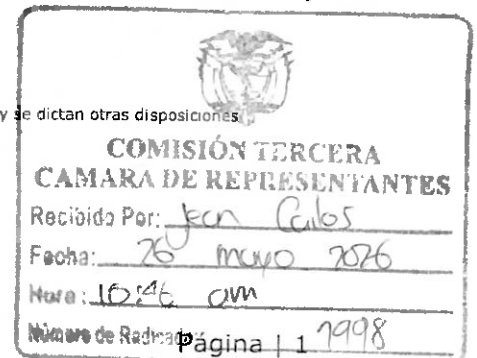 y se dictan otras disposiciones
COMISIÓN TERCERA
CAMARA DE REPRESENTANTES
Recibido Por: Jean Carlos
Fecha: 26 mayo 2026
Hora: 10:46 am
Número de Radicado: 1998
Página | 1